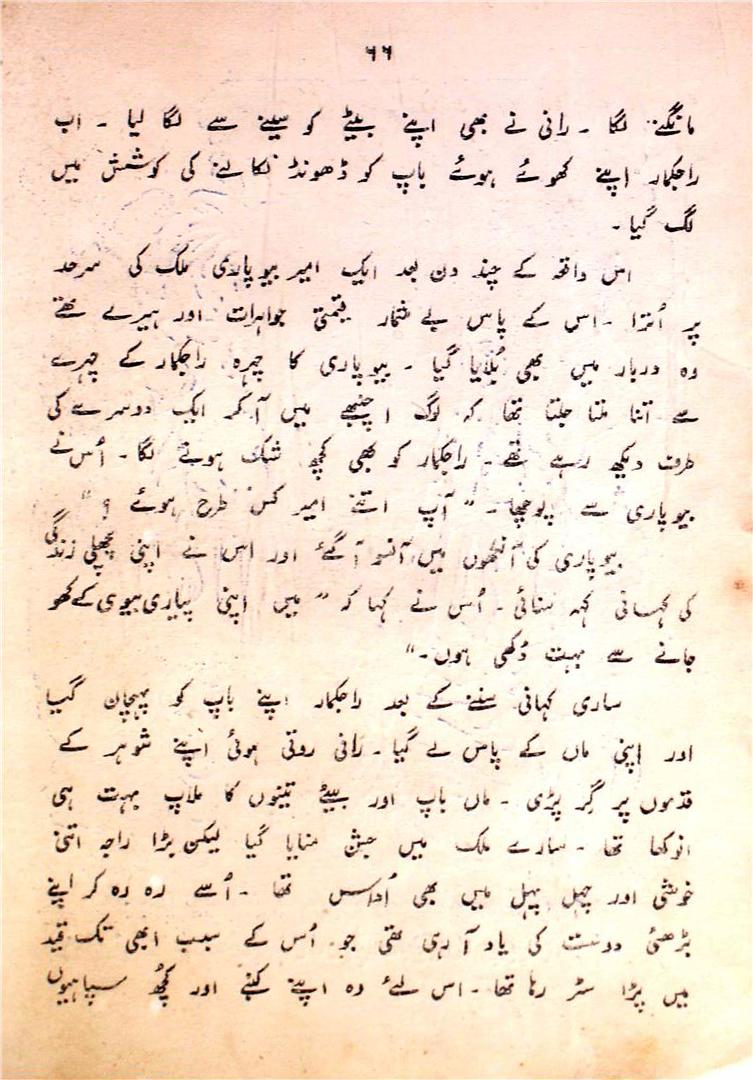 ۶۶
مانگنے لگا ۔ رانی نے بھی اپنے بیٹے کو سینے سے لگا لیا ۔ اب
راجکمار اپنے کھوئے ہوئے باپ کو ڈھونڈ نکالنے کی کوشش میں
لگ گیا ۔
اس واقعہ کے چند دن بعد ایک امیر بیوپاری ملک کی سرحد
پر اُترا ۔ اس کے پاس بے شمار قیمتی جواہرات اور ہیرے تھے
وہ دربار میں بھی بُلایا گیا ۔ بیوپاری کا چہرہ راجکمار کے چہرے
سے اتنا ملتا جلتا تھا کہ لوگ اچنبھے میں آ کر ایک دوسرے کی
طرف دیکھ رہے تھے ۔ راجکمار کو بھی کچھ شک ہونے لگا ۔ اُس نے
بیوپاری سے پوچھا ۔ " آپ اتنے امیر کس طرح ہوئے ؟ "
بیوپاری کی آنکھوں میں آنسو آ گئے اور اس نے اپنی پچھلی زندگی
کی کہانی کہہ سنائی ۔ اُس نے کہا کہ " میں اپنی پیاری بیوی کے کھو
جانے سے بہت دُکھی ہوں ۔"
ساری کہانی سننے کے بعد راجکمار اپنے باپ کو پہچان گیا
اور اپنی ماں کے پاس لے گیا ۔ رانی روتی ہوئی اپنے شوہر کے
قدموں پر گِر پڑی ۔ ماں باپ اور بیٹے تینوں کا ملاپ بہت ہی
انوکھا تھا ۔ سارے ملک میں جشن منایا گیا لیکن بڑا راجہ اتنی
خوشی اور چہل پہل میں بھی اُداس تھا ۔ اُسے رہ رہ کر اپنے
بڑھئی دوست کی یاد آ رہی تھی جو اُس کے سبب ابھی تک قید
میں پڑا سٹر رہا تھا ۔ اس لئے وہ اپنے کنبے اور کچھ سپاہیوں